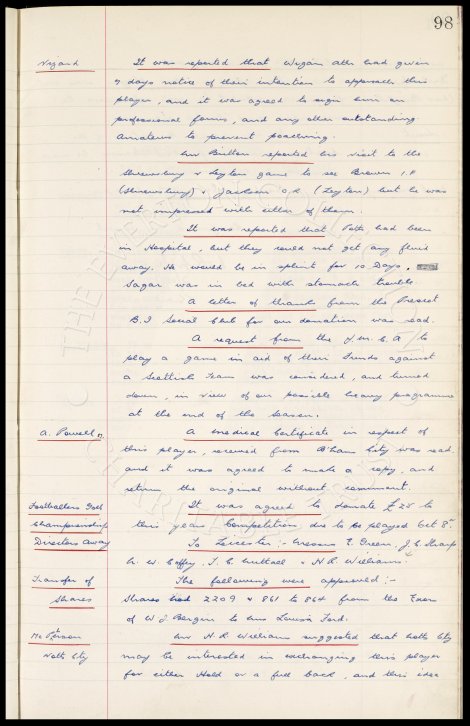 98
It was reported that Wigan Ath had given
7 days notice of their intention to approach this
player, and it was agreed to sign him on
professional forms, and any other outstanding
Amateurs to prevent poaching.
Mr Britton reported his visit to the
Shrewsbury v Leyton game to see Brown I.R
(Shrewsbury) & Jackson O.R (Leyton) but he was
not impressed with either of them.
It was reported that Potts had been
in Hospital, but they could not get any fluid
away. He would be in splint for 10 Days.
Sagar was in bed with stomach trouble.
A letter of thanks from the Prescot
B.I Social Club for our donation was read.
A request from the Y.M.C.A to
play a game in aid of their funds against
a Scottish Team was considered, and turned
down, in view of our possible heavy programme
at the end of the Season.
A. Powell
A medical Certificate in respect of
this player, received from B'ham City was read
and it was agreed to make a copy, and
return the original without comment.
Footballers Golf
It was agreed to Donate £25 to
Championship
this years Competition, due to be played Oct 8th.
Directors Away
To Leicester :- Messrs E. Green, J.C. Sharp
W. Coffey, T.C. Nuttall & H.R. Williams.
Transfer of
The following were approved :-
Shares
Shares 2209 & 861 to 864 from the Exor
of W J to Mrs Louisa Ford.
Mr H.R Williams suggested that Notts City
Notts City
may be interested in exchanging this player
for either Hold or a full back, and this idea